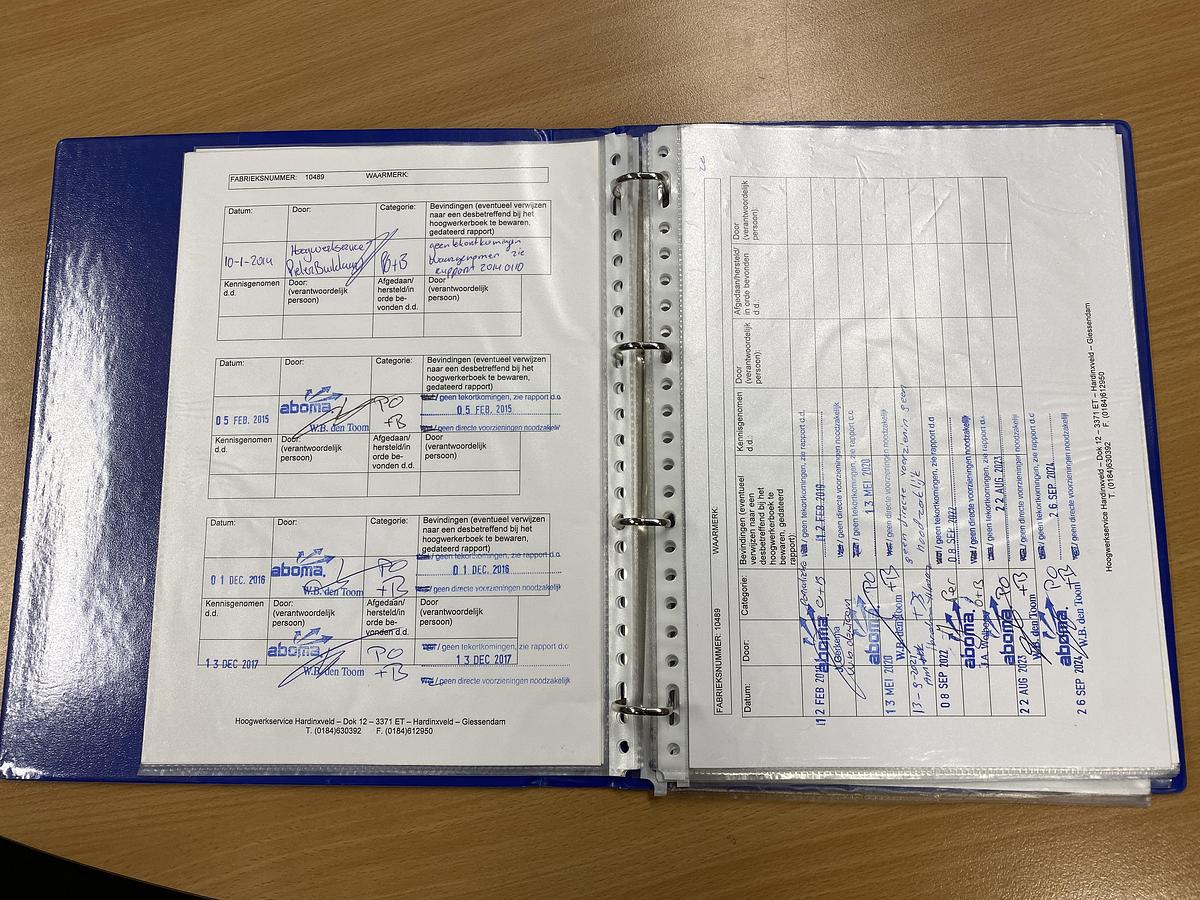 FABRIEKSNUMMER: 10489 WAARMERK:
Datum: Door: Categorie: Bevindingen (eventueel verwijzen
naar een desbetreffend bij het
hoogwerkerboek te bewaren,
gedateerd rapport)
10-1-2014 Hoogwerkservice B+B geen tekortkomingen
Pieter waargenomen zie
rapport 2014 0110
Kennisgenomen Door: Afgedaan/ Door
d.d. (verantwoordelijk hersteld/in (verantwoordelijk
persoon) orde be- persoon)
vonden d.d.
Datum: Door: Categorie: Bevindingen (eventueel verwijzen
naar een desbetreffend bij het
hoogwerkerboek te bewaren,
gedateerd rapport)
/ geen tekortkomingen, zie rapport d.d.
05 FEB. 2015 aboma PO 05 FEB. 2015
W.B. den Toom +B / geen directe voorzieningen noodzakelijk
Kennisgenomen Door: Afgedaan/ Door
d.d. (verantwoordelijk hersteld/in (verantwoordelijk
persoon) orde be- persoon)
vonden d.d.
Datum: Door: Categorie: Bevindingen (eventueel verwijzen
naar een desbetreffend bij het
hoogwerkerboek te bewaren,
gedateerd rapport)
/ geen tekortkomingen, zie rapport d.d.
01 DEC. 2016 aboma PO 01 DEC. 2016
W.B. den Toom +B / geen directe voorzieningen noodzakelijk
Kennisgenomen Door: Afgedaan/ Door
d.d. (verantwoordelijk hersteld/in (verantwoordelijk
persoon) orde be- persoon)
vonden d.d.
aboma PO / geen tekortkomingen, zie rapport d.d.
13 DEC. 2017 W.B. den Toom +B 13 DEC. 2017
/ geen directe voorzieningen noodzakelijk
Hoogwerkservice Hardinxveld – Dok 12 – 3371 ET – Hardinxveld – Giessendam
T. (0184)630392 F. (0184)612950
22
FABRIEKSNUMMER: 10489 WAARMERK
Datum: Door: Categorie: Bevindingen (eventueel verwijzen naar een desbetreffend bij het hoogwerkerboek te bewaren, gedateerd rapport): Kennisgenomen d.d.: Door (verantwoordelijk persoon): Afgedaan/hersteld/in orde bevonden d.d.: Door (verantwoordelijk persoon):
/ geen tekortkomingen, zie rapport d.d.
12 FEB 2019 aboma 12 FEB 2019
/ geen directe voorzieningen noodzakelijk
/ geen tekortkomingen, zie rapport d.d.
13 MEI 2020 aboma PO 13 MEI 2020
W.B. den Toom +B / geen directe voorzieningen noodzakelijk
13-9-2021 +B geen directe voorziening geen
noodzakelijk
/ geen tekortkomingen, zie rapport d.d.
08 SEP 2022 aboma 08 SEP. 2022
/ geen directe voorzieningen noodzakelijk
/ geen tekortkomingen, zie rapport d.d.
22 AUG 2023 aboma PO 22 AUG 2023
W.B. den Toom +B / geen directe voorzieningen noodzakelijk
/ geen tekortkomingen, zie rapport d.d.
26 SEP 2024 aboma PO 26 SEP. 2024
W.B. den Toom +B / geen directe voorzieningen noodzakelijk
Hoogwerkservice Hardinxveld – Dok 12 – 3371 ET – Hardinxveld – Giessendam
T. (0184)630392 F. (0184)612950